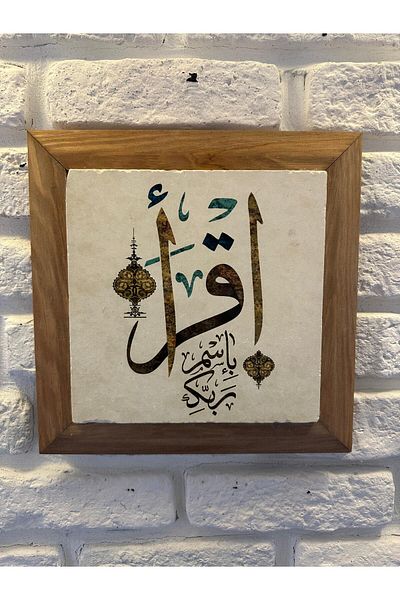 اقرأ
بِاسْمِ
رَبِّكَ